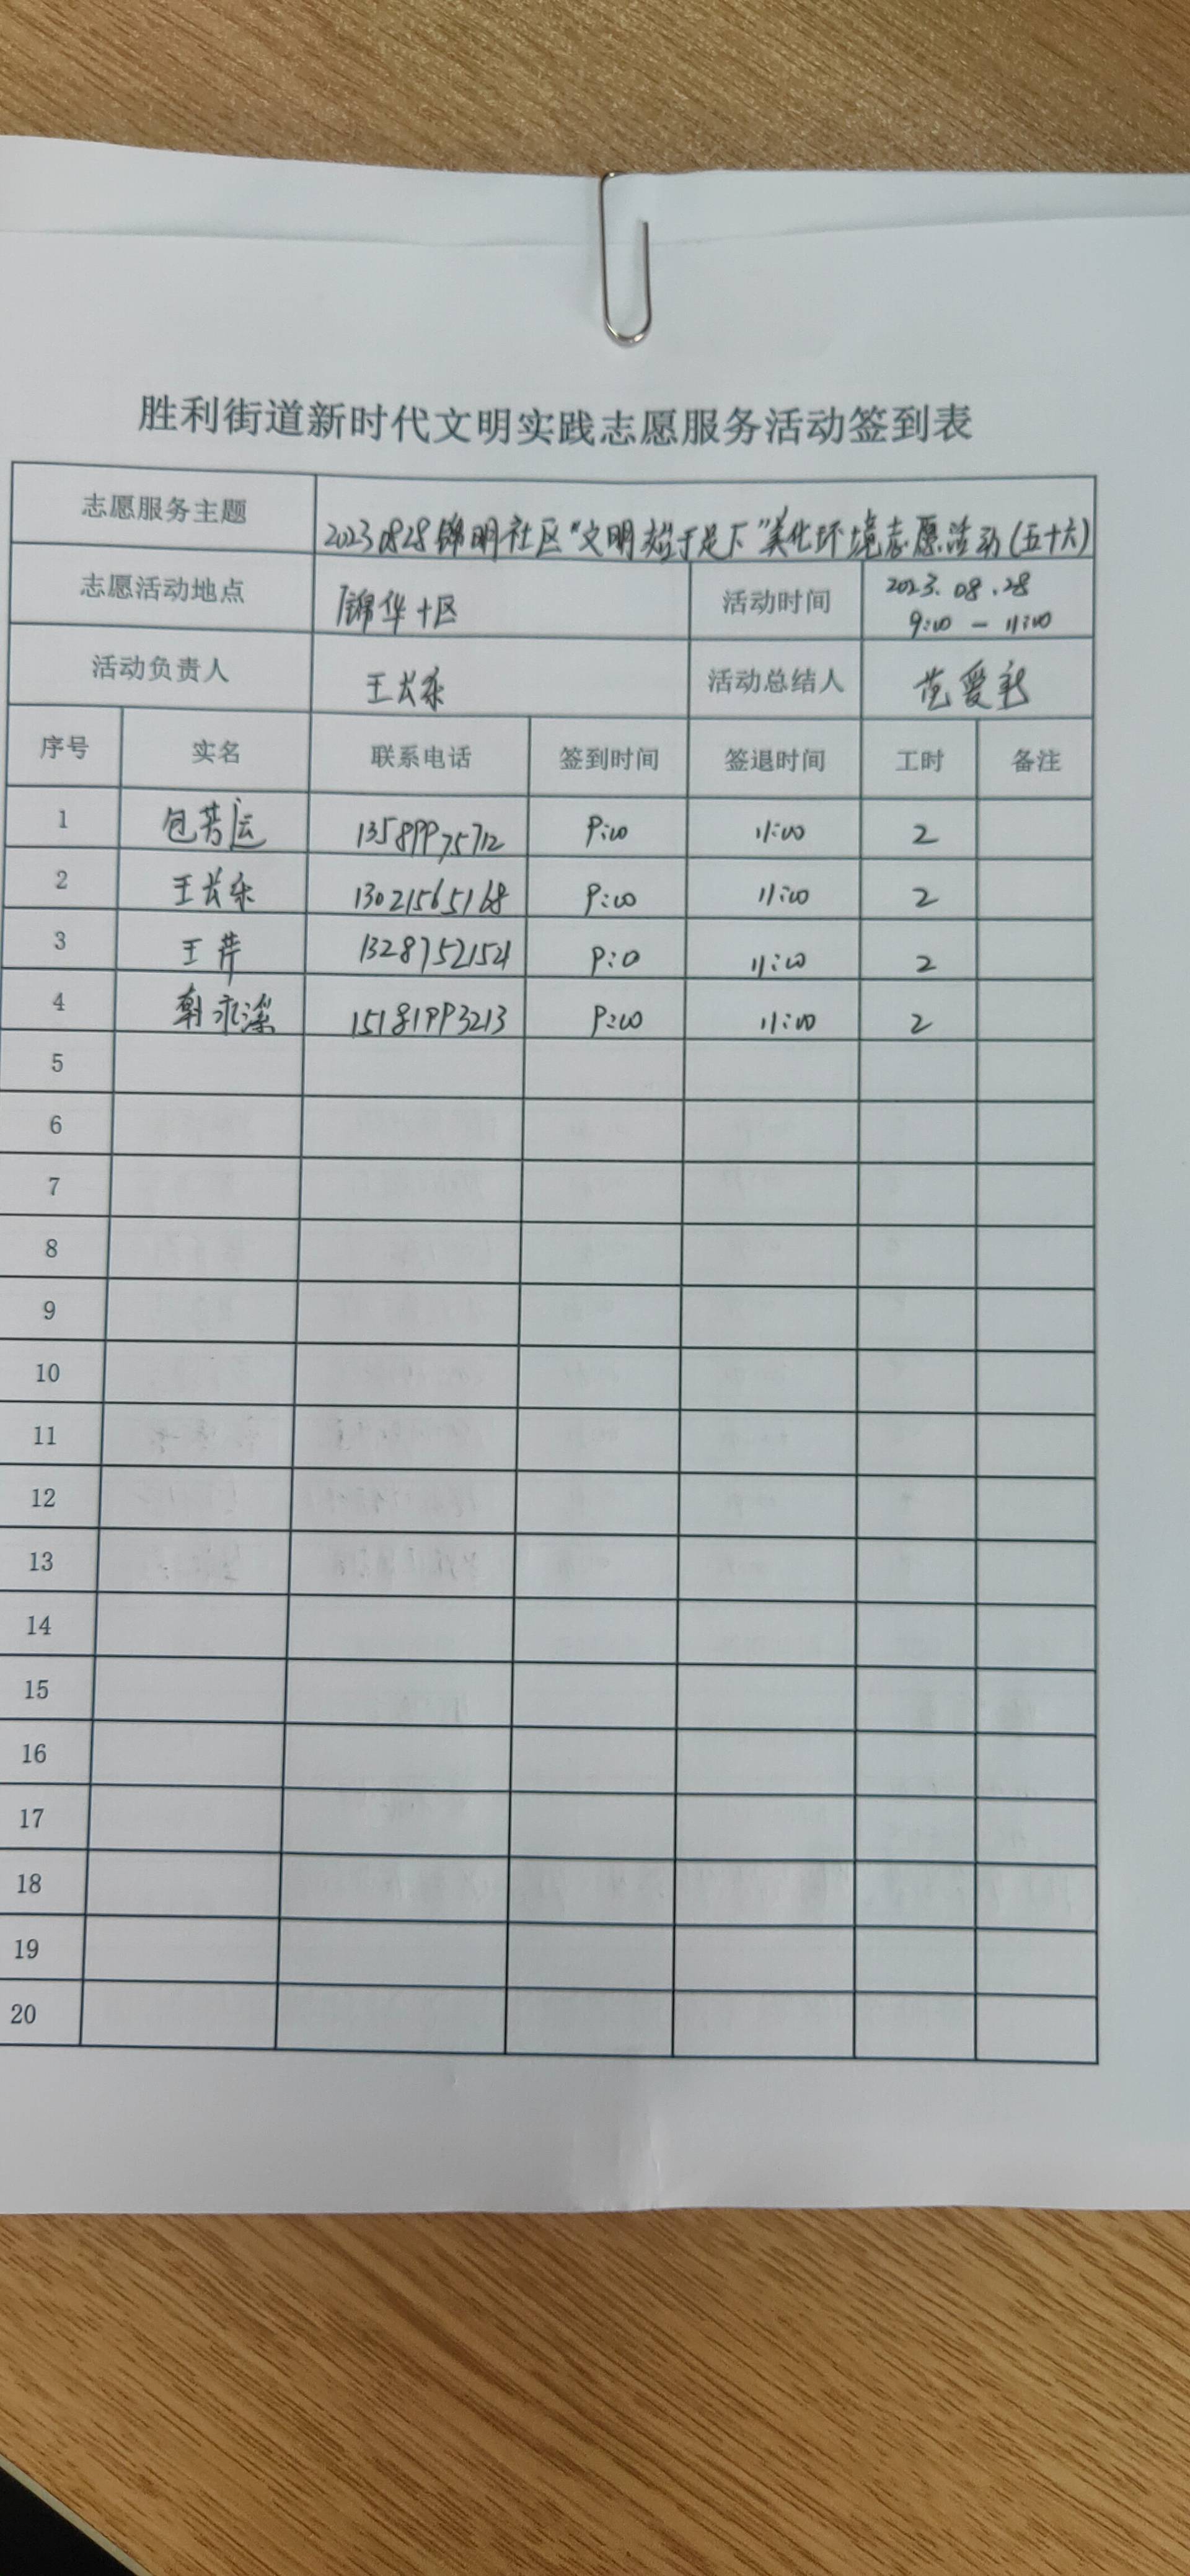 胜利街道新时代文明实践志愿服务活动签到表
志愿服务主题 20230828锦明社区“文明始于足下”美化环境志愿活动(五十六)
志愿活动地点 锦华十区 活动时间 2023.08.28
9:00 — 11:00
活动负责人 王长东 活动总结人 范爱新
序号 实名 联系电话 签到时间 签退时间 工时 备注
1 包芳运 13589975712 9:00 11:00 2
2 王长东 13021565168 9:00 11:00 2
3 王芹 13287521521 9:0 11:00 2
4 15181993213 9:00 11:00 2
5
6
7
8
9
10
11
12
13
14
15
16
17
18
19
20